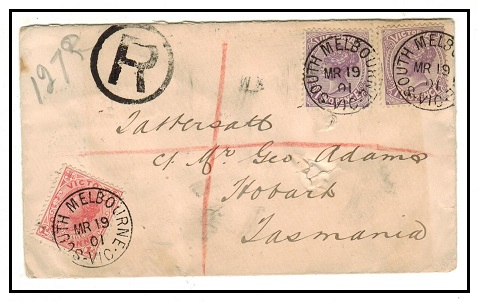 127R
R
VICTORIA
SOUTH MELBOURNE
MR 19
01
VIC
SOUTH MELBOURNE
MR 19
01
VIC
Tattersall
c/. Mr Geo. Adams
Hobart
Tasmania
SOUTH MELBOURNE
MR 19
01
VIC